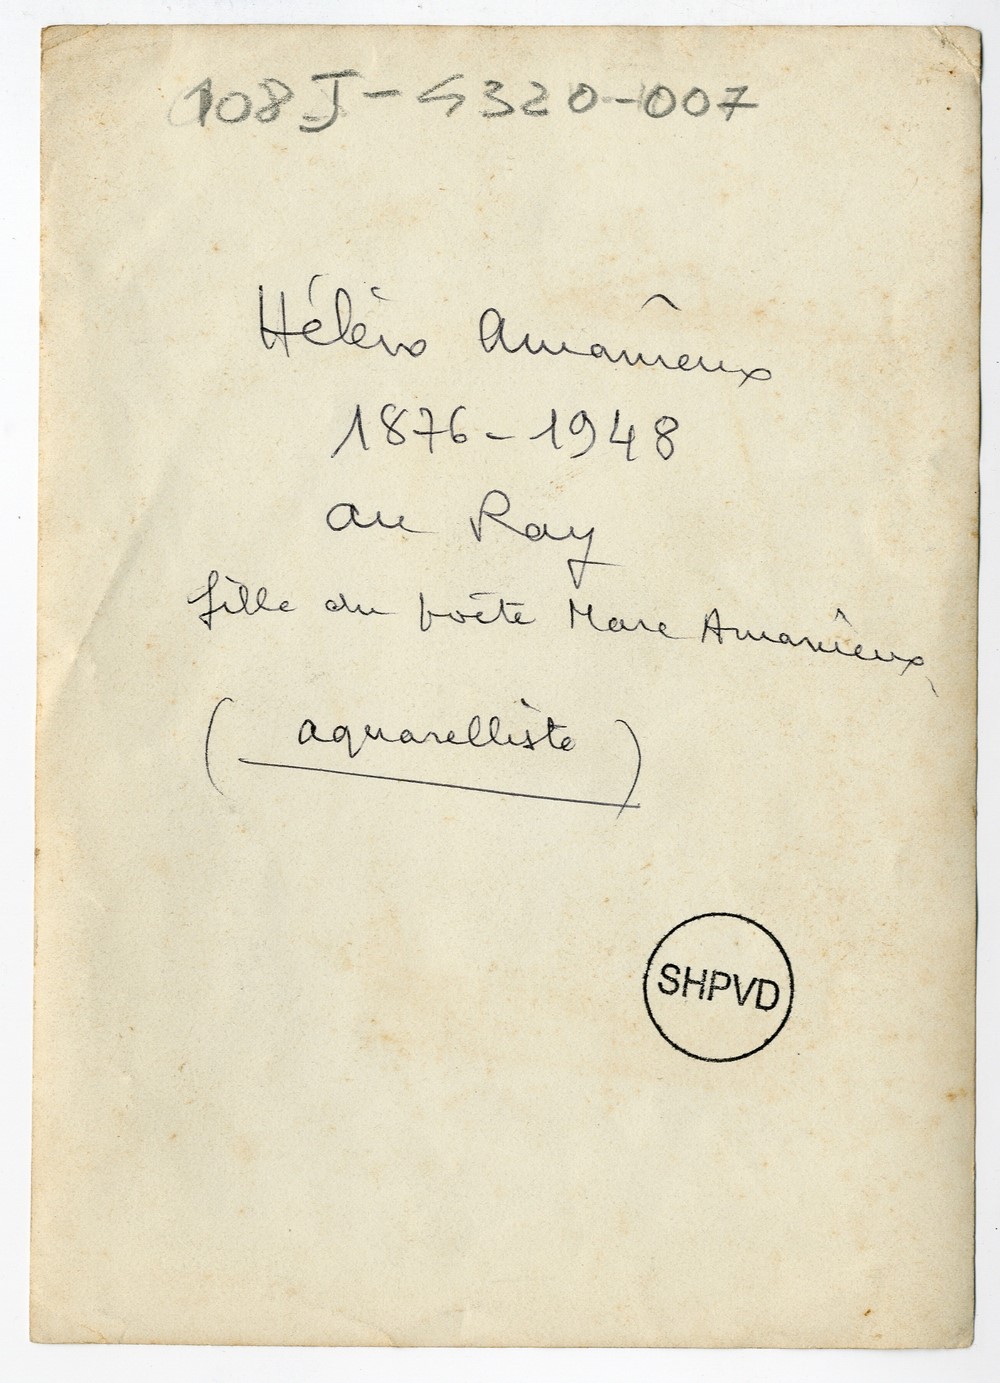 108 J - 4320-007
Hélène Amanieux
1876-1948
au Ray
fille du poète Marc Amanieux
(aquarelliste)
SHPVD